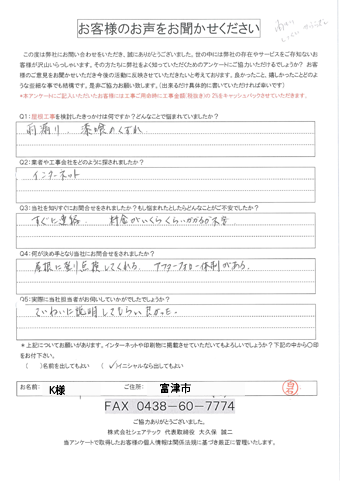 お客様のお声をお聞かせください
この度は弊社にお問い合わせをいただき、誠にありがとうございました。世の中には弊社の存在やサービスをご存知ないお
客様が沢山いらっしゃいます。その方たちに弊社をよく知っていただくためのアンケートにご協力いただけるでしょうか？お
客様のご意見をお聞かせいただき今後の活動に反映させていきたいと考えております。良かったこと、嬉しかったことどのよ
うな些細な事でも結構です。是非ご協力お願い致します。（出来るだけ具体的に書いていただければ幸いです）
*本アンケートにご記入いただいたお客様には工事ご用命時に工事金額(税抜き)の2%をキャッシュバックさせていただきます。
Q1：屋根工事を検討したきっかけは何ですか？どんなことで悩まれていましたか？
雨漏り、漆喰のくずれ
Q2：業者や工事会社をどのように探されましたか？
インターネット
Q3：当社を知りすぐにお問合せをされましたか？もし悩まれたとしたらどんなことがご不安でしたか？
すぐに連絡 料金がいくらくらいかかるか不安
Q4：何が決め手となり当社にお問合せをされましたか？
屋根に登り点検してくれる。アフターフォロー体制がある。
Q5：実際に当社担当者がお伺いしていかがでしたでしょうか？
ていねいに説明してもらい良かった。
＊上記についてお願いがあります。インターネットや印刷物に掲載させていただいてもよろしいでしょうか？下記の中から〇印
をお付け下さい。
（ ）名前を出してもよい （✓）イニシャルなら出してもよい
お名前： K様 ご住所： 富津市
FAX 0438-60-7774
ご協力ありがとうございました。
株式会社シェアテック 代表取締役 大久保 誠二
当アンケートで取得したお客様の個人情報は関係法規に基づき厳正に管理いたします。